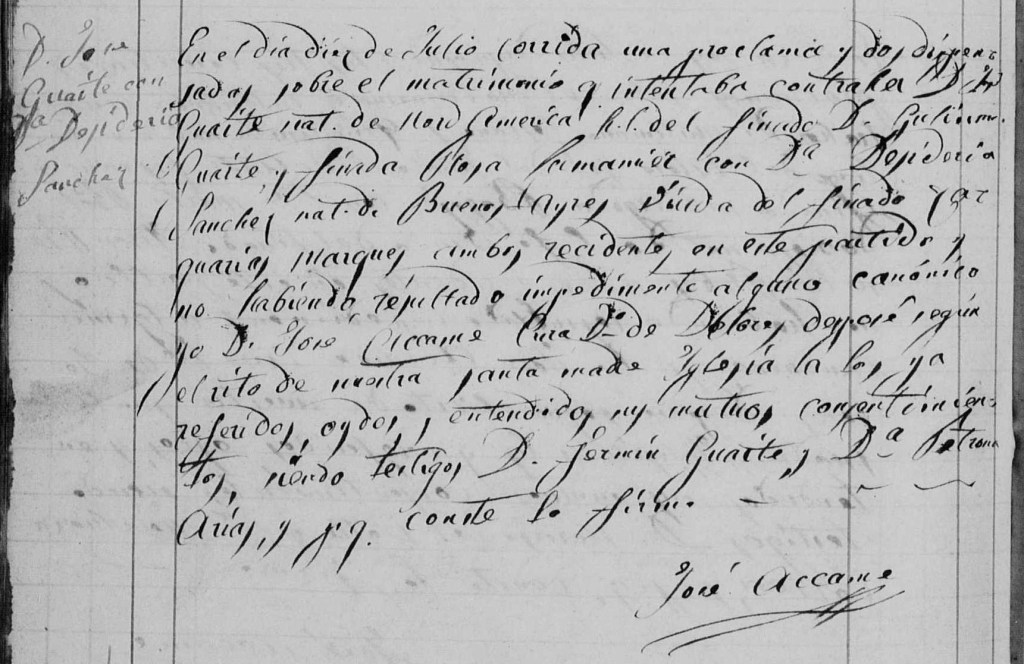 D. Jose
Guaite con
Da Desideria
Sanchez
En el dia diez de Julio corrida una proclama y dos dispen=
sados sobre el matrimonio q intentaba contraher D. Je
Guaite nat. de Nord America h. l. del finado D. Guliermo
Guaite, y finada Rosa con Da Desideria
Sanchez nat. de Buenos Ayres Viuda del finado
marques ambos recidentes en este partido y
no habiendo resultado impedimento alguno canónico
yo D. José Accame Cura Vo de Dolores desposé según
el rito de nuestra santa madre Iglesia la los ya
referidos, oydos, y entendidos sus mutuos consentimien=
tos, siendo testigos D. Fermin Guaite, y Da Petrona
Arias, y p. q. conste lo firmo
José Accame